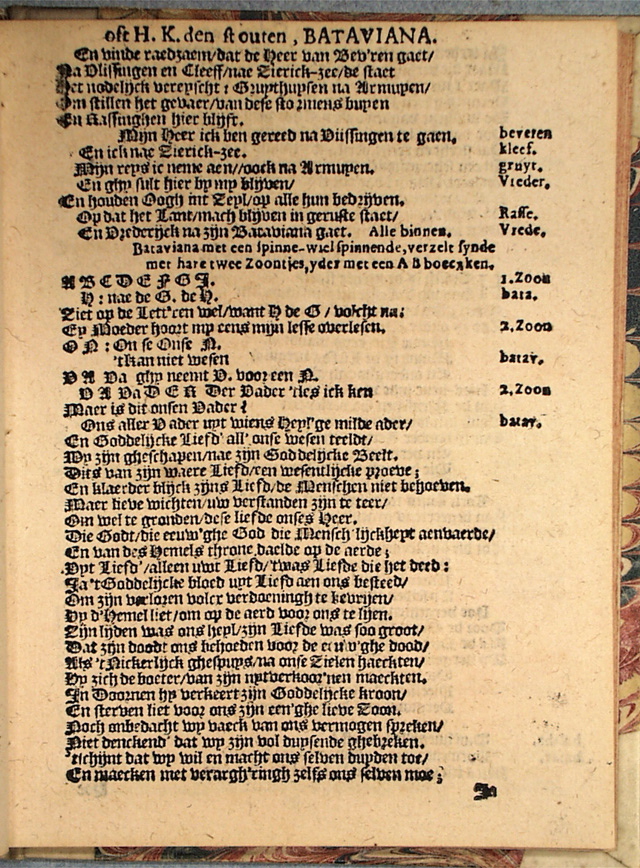 oft H. K. den stouten, BATAVIANA.
En vinde raedzaem/dat de Heer van Bev'ren gaet/
Na Vlissingen en Cleeff/nae Zierick-zee/de staet
Het nodelijck vereyscht: Gruythuysen na Armuyen/
Om stillen het gevaer/van dese stormens buyen
En Rassinghen hier blijft.
Mijn Heer ick ben gereed na Vlissingen te gaen. beveren
En ick nae Zierick-zee. kleef.
Mijn reys ic neme aen/oock na Armuyen. gruyt.
En ghy sult hier by my blijven/ Vreder.
En houden Oogh int Zeyl/op alle hun bedrijven.
Op dat het Lant/mach blijven in geruste staet/ Rasse.
En Vrederijck na zijn Bataviana gaet. Alle binnen. Vrede.
Bataviana met een spinne-wiel spinnende, verzelt synde
met hare twee Zoontjes, yder met een A B boecxken.
A B C D E F G J. 1. Zoon
H: nae de G. de H. bata.
Ziet op de Lett'ren wel/want H de G/volcht na:
Ey Moeder hoort my eens mijn lesse overlesen. 2. Zoon
O N: On se Onse N.
'tkan niet wesen batav.
V A Va ghy neemt V. voor een N.
V A Va D E R Der Vader 'ties ick ken 2. Zoon
Maer is dit onsen Vader?
Ons aller Vader uyt wiens Heyl'ge milde ader/ batav.
En Goddelijcke Liefd' all' onse wesen teeldt/
Wy zijn gheschapen/nae zijn Goddelijcke Beelt.
Dits van zijn waere Liefd/een wesentlijcke proeve;
En klaerder blijck zijns Liefd/de Menschen niet behoeven.
Maer lieve wichten/uw verstanden zijn te teer/
Om wel te gronden/dese liefde onses Heer.
Die Godt/die eeuw'ghe God die Mensch'lijckheyt aenvaerde/
En van des Hemels throne daelde op de aerde;
Uyt Liefd'/alleen uwt Liefd/'twas Liefde die het deed:
Ja 't Goddelijcke bloed uyt Liefd aen ons besteed/
Om zijn verloren volck verdoemingh te bevrijen/
Hy d'Hemel liet/om op de aerd voor ons te lijen.
Zijn lijden was ons heyl/zijn Liefde was soo groot/
Dat zijn doodt ons behoeden voor de eeuw'ghe dood/
Als 't Nickerlijck ghespuys/na onse Zielen haeckten/
Hy zich de boeter/van zijn uytverkoor'nen maeckten.
In Doornen hy verkeert zijn Goddelijcke kroon/
En sterven liet voor ons zijn een'ghe lieve Zoon.
Noch onbedacht wy vaeck van ons vermogen spreken/
Niet denckend' dat wy zijn vol duysende ghebreken.
'tschijnt dat wy wil en macht ons selven duyden toe/
En maecken met verargh'ringh zelfs ons selven moe;
In